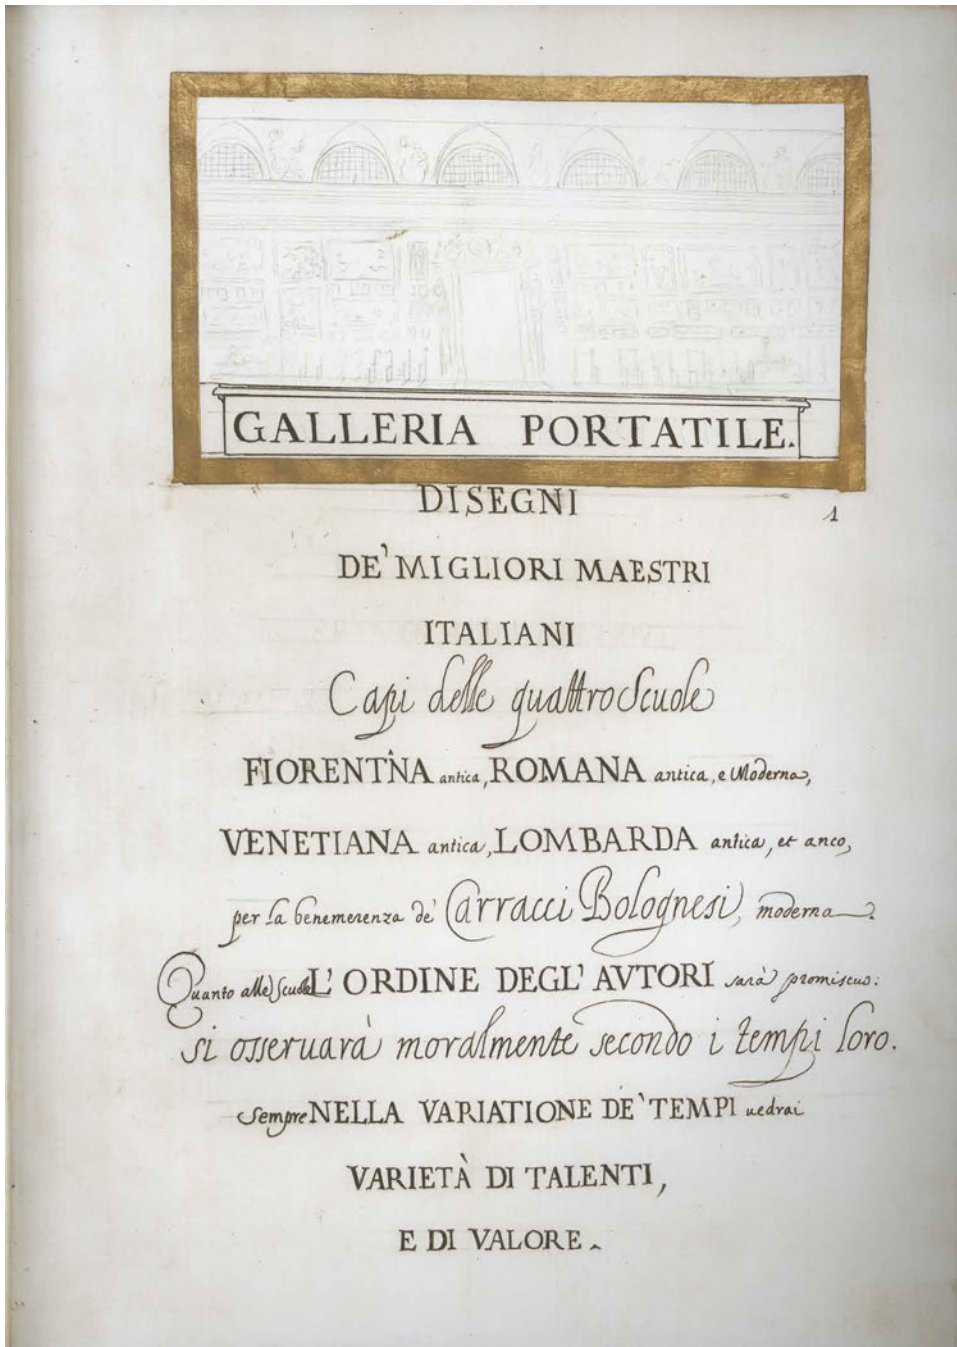 GALLERIA PORTATILE.
DISEGNI
1
DE' MIGLIORI MAESTRI
ITALIANI
Capi delle quattro Scuole
FIORENTINA antica, ROMANA antica, e Moderna,
VENETIANA antica, LOMBARDA antica, et anco,
per la benemerenza de' Carracci Bolognesi, moderna.
Quanto alle Scuole L' ORDINE DEGL' AVTORI sarà promiscuo:
si osseruarà moralmente secondo i tempi loro.
Sempre NELLA VARIATIONE DE' TEMPI uedrai
VARIETÀ DI TALENTI,
E DI VALORE.